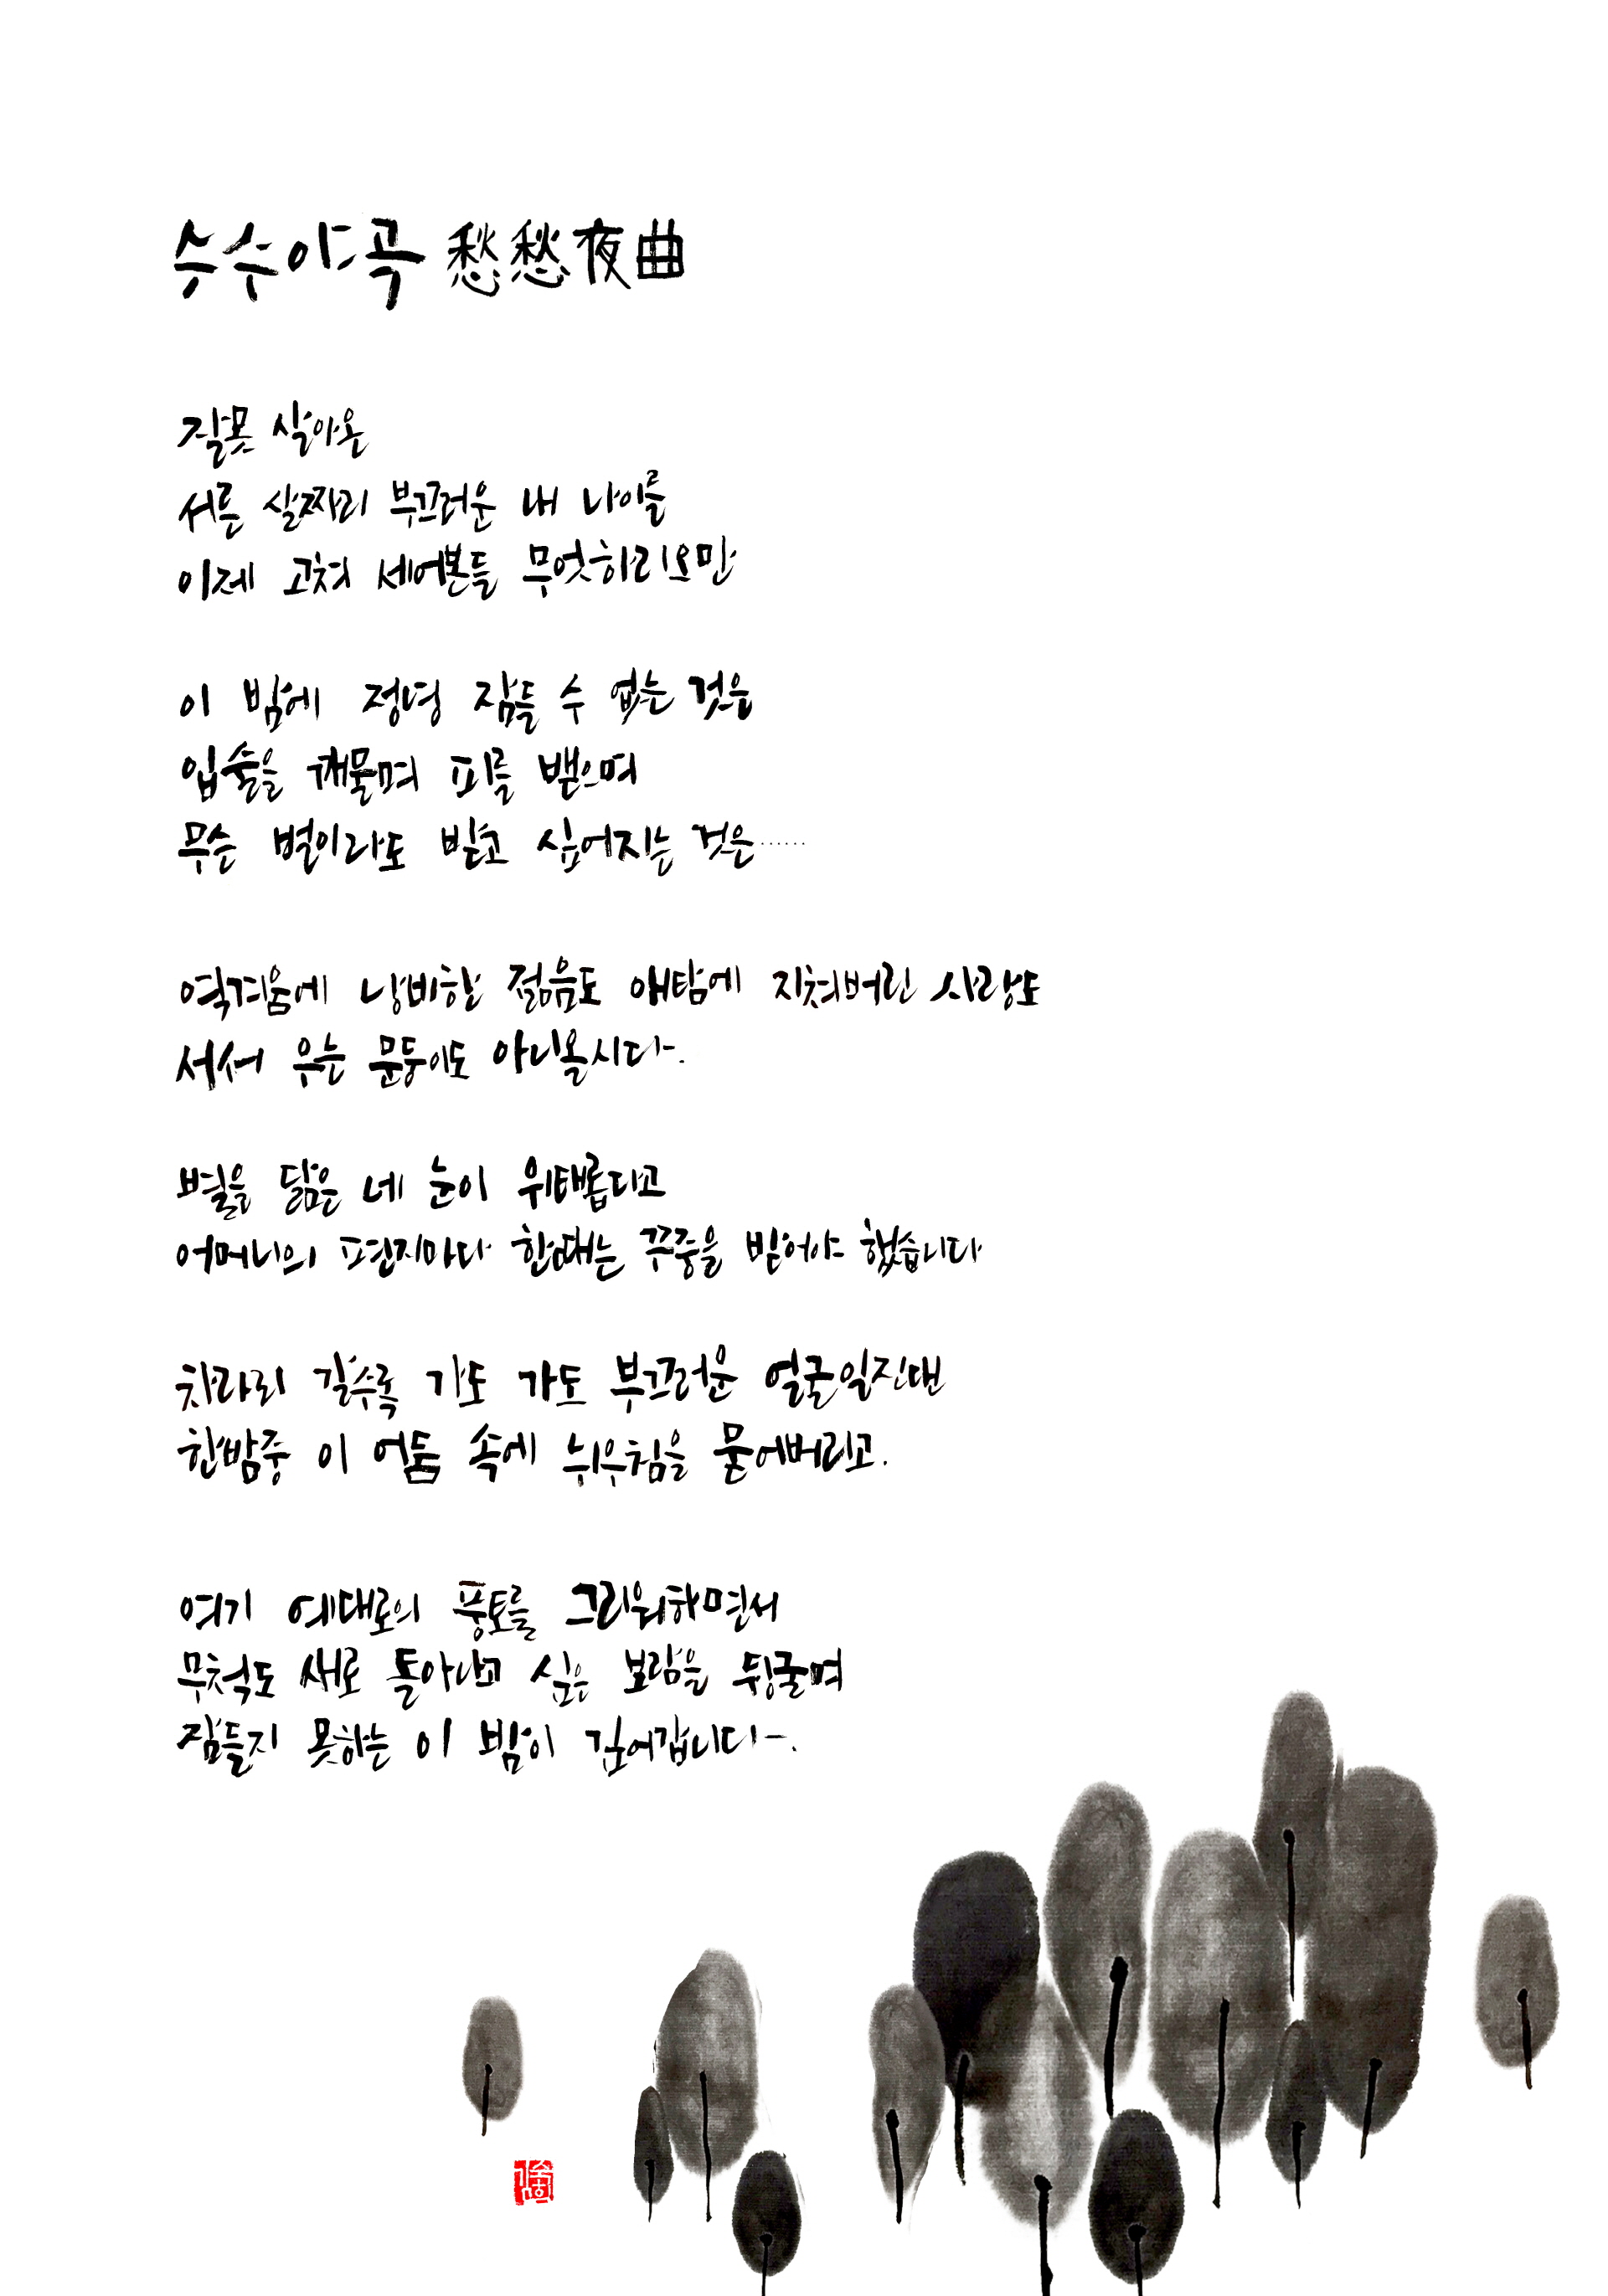 수수야곡 愁愁夜曲
잘못 살아온
서른 살짜리 부끄러운 내 나이를
이제 고쳐 세어본들 무엇하리오만
이 밤에 정녕 잠들 수 없는 것은
입술을 깨물며 피를 뱉으며
무슨 벌이라도 받고 싶어지는 것은……
역겨움에 낭비한 젊음도 애탐에 지쳐버린 사랑도
서서 우는 문둥이도 아니올시다.
별을 닮은 네 눈이 위태롭다고
어머니의 편지마다 한때는 꾸중을 받아야 했습니다
차라리 갈수록 가도 가도 부끄러운 얼굴일진댄
한밤중 이 어둠 속에 뉘우침을 묻어버리고.
여기 예대로의 풍토를 그리워하면서
무척도 새로 돌아나고 싶은 보람을 뒹굴며
잠들지 못하는 이 밤이 깊어갑니다.